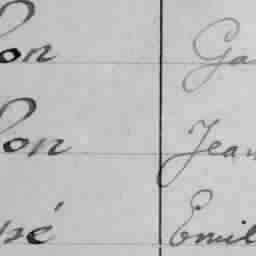 on Ga
on Jean
pé Emil